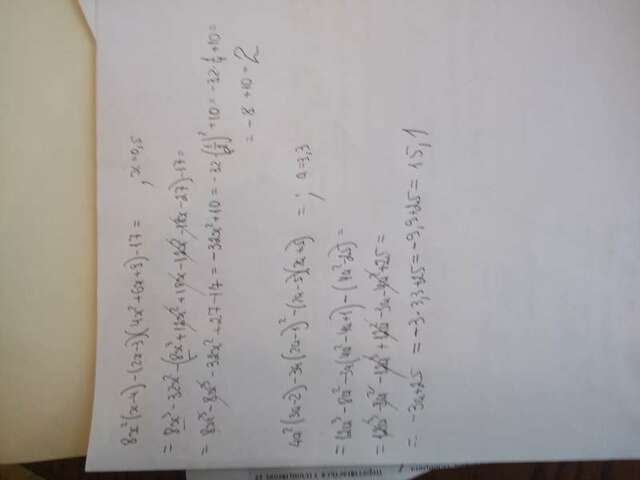 8x²(x-4)-(2x-3)(4x²+6x+9)-17= , x=0,5
= 8x³-32x²-(8x³+12x²+18x-12x²-18x-27)-17=
= 8x³-8x³-32x²+27-17=-32x²+10=-32·(1/2)²+10=-32·1/4+10=
= -8+10=2
4a²(3a-2)-3a(2a-1)²-(2a-5)(2a+5) = ; a=3,3
= 12a³-8a²-3a(4a²-4a+1)-(4a²-25)=
= 12a³-8a²-12a³+12a²-3a-4a²+25=
= -3a+25 = -3·3,3+25=-9,9+25= 15,1